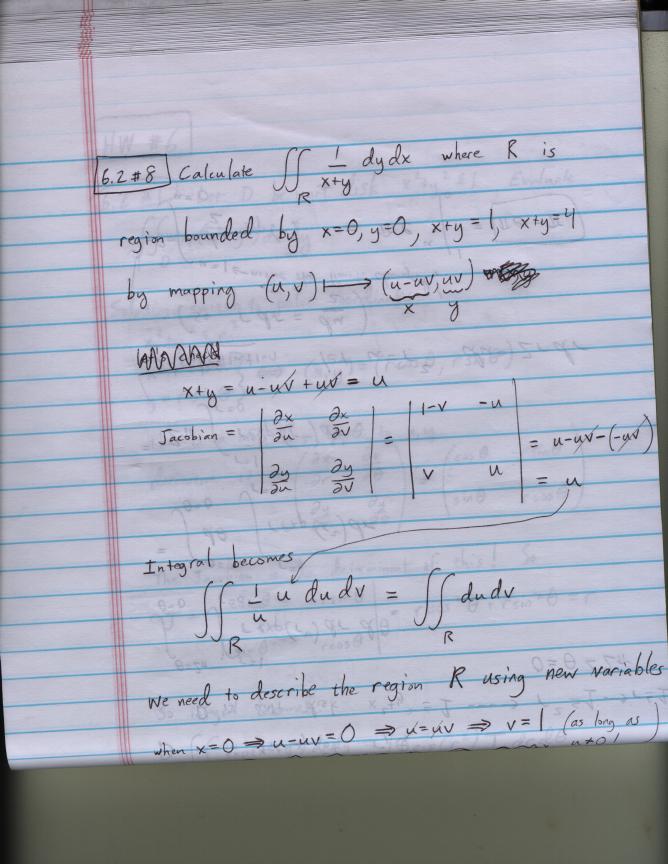 6.2 #8 Calculate ∬_R 1/(x+y) dy dx where R is
region bounded by x=0, y=0, x+y=1, x+y=4
by mapping (u,v) ↦ (u-uv, uv)
x y
x+y = u-uv+uv = u
Jacobian = | ∂x/∂u ∂x/∂v ; ∂y/∂u ∂y/∂v | = | 1-v -u ; v u | = u-uv-(-uv)
= u
Integral becomes
∬_R 1/u u du dv = ∬_R du dv
We need to describe the region R using new variables
when x=0 ⇒ u-uv=0 ⇒ u=uv ⇒ v=1 (as long as
u≠0!)